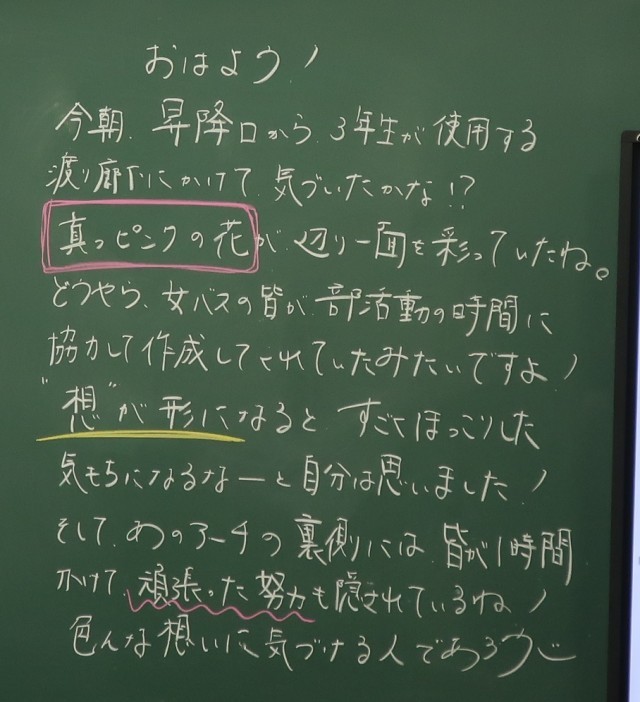 おはよう!
今朝、昇降口から、3年生が使用する
渡り廊下にかけて、気づいたかな!?
真っピンクの花が、辺り一面を彩っていたね。
どうやら、女バスの皆が、部活動の時間に
協力して作成してくれていたみたいですよ!
"想"が形になると すごくほっこりした
気もちになるなーと自分は思いました!
そして、あのアーチの裏側には、皆が1時間
かけて、頑張った努力も隠されているね!
色んな想いに気づける人であろう